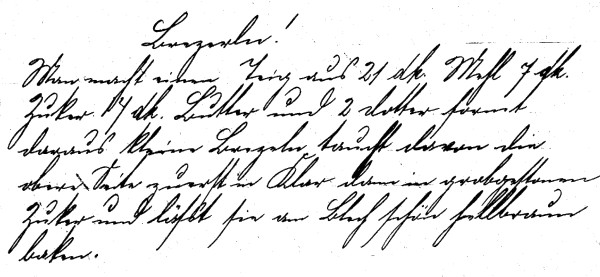 Brezerln!
Man macht einen Teig aus 21 dk. Mehl 7 dk.
Zuker 17 dk. Butter und 2 dotter formt
daraus kleine Brezeln, taucht davon die
obere Seite zuerst in Klar dann in grobgestosenen
Zuker und läßt sie am Blech schön hellbraun
baken.